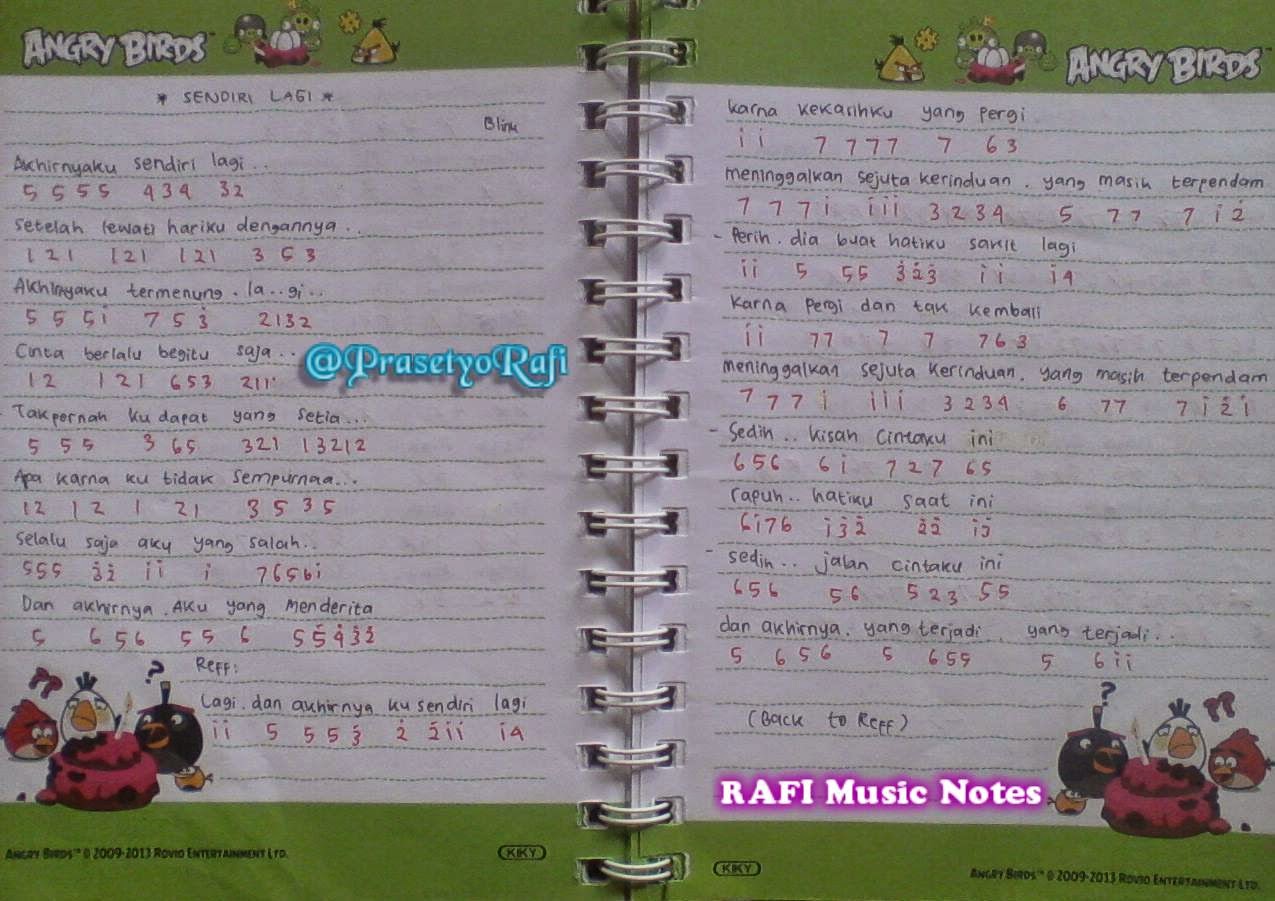 ANGRY BIRDS™
* SENDIRI LAGI *
Blink
Akhirnyaku sendiri lagi..
5 5 5 5 4 3 4 3 2
Setelah lewati hariku dengannya..
1 2 1 1 2 1 1 2 1 3 5 3
Akhirnyaku termenung. la..gi..
5 5 5 i 7 5 3̇ 2 1 3 2
Cinta berlalu begitu saja..
1 2 1 2 1 6 5 3 2 1 1
@PrasetyoRafi
Takpernah ku dapat yang setia...
5 5 5 3 6 5 3 2 1 1 3 2 1 2
Apa karna ku tidak sempurnaa...
1 2 1 2 1 2 1 3 5 3 5
Selalu saja aku yang salah..
5 5 5 3̇ 2̇ i i i 7 6 5 6 i
Dan akhirnya. Aku yang menderita
5 6 5 6 5 5 6 5 5̇ 4̇ 3̇ 2̇
Reff:
Lagi. dan akhirnya ku sendiri lagi
i i 5 5 5 3̇ 2̇ 2̇ i i i 4
ANGRY BIRDS™ © 2009-2013 ROVIO ENTERTAINMENT LTD.
KIKY
ANGRY BIRDS™
karna kekasihku yang pergi
i i 7 7 7 7 7 6 3
meninggalkan sejuta kerinduan. yang masih terpendam
7 7 7 i i i i 3 2 3 4 5 7 7 7 i 2̇
- Perih. dia buat hatiku sakit lagi
i i 5 5 5 3̇ 2̇ 3̇ i i i 4
karna pergi dan tak kembali
i i 7 7 7 7 7 6 3
meninggalkan sejuta kerinduan. yang masih terpendam
7 7 7 i i i i 3 2 3 4 6 7 7 7 i 2̇ i
- Sedih.. kisah cintaku ini
6 5 6 6 i 7 2 7 6 5
rapuh.. hatiku saat ini
6 i 7 6 i 3̇ 2̇ 2̇ 2̇
- sedih.. jalan cintaku ini
6 5 6 5 6 5 2 3 5 5
dan akhirnya. yang terjadi. yang terjadi..
5 6 5 6 5 6 5 5 5 6 i i
(Back to Reff)
RAFI Music Notes
KIKY
ANGRY BIRDS™ © 2009-2013 ROVIO ENTERTAINMENT LTD.